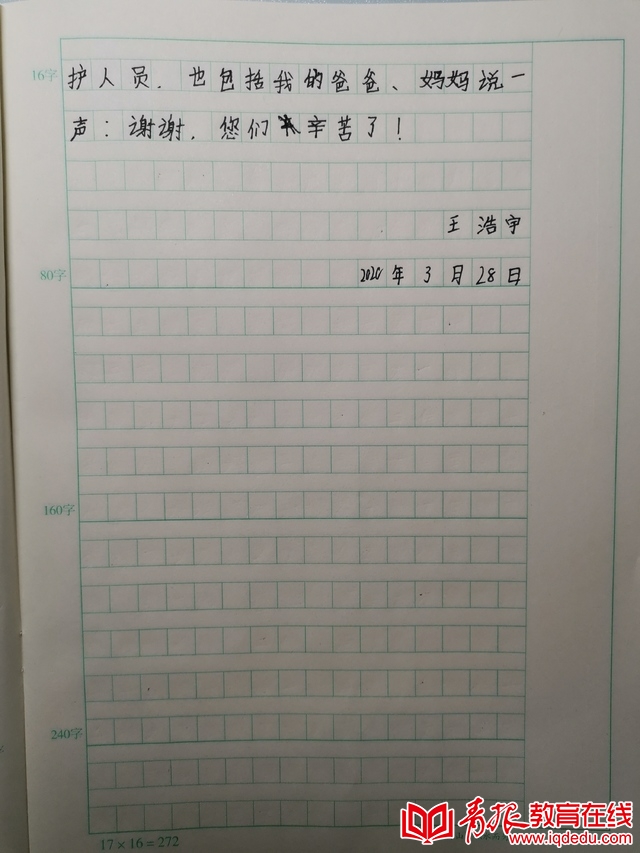 16字
护人员. 也包括我的爸爸、妈妈说一
声：谢谢. 您们辛苦了！
王浩宇
80字
2020年3月28日
160字
240字
17×16=272
青报教育在线
www.iqdedu.com